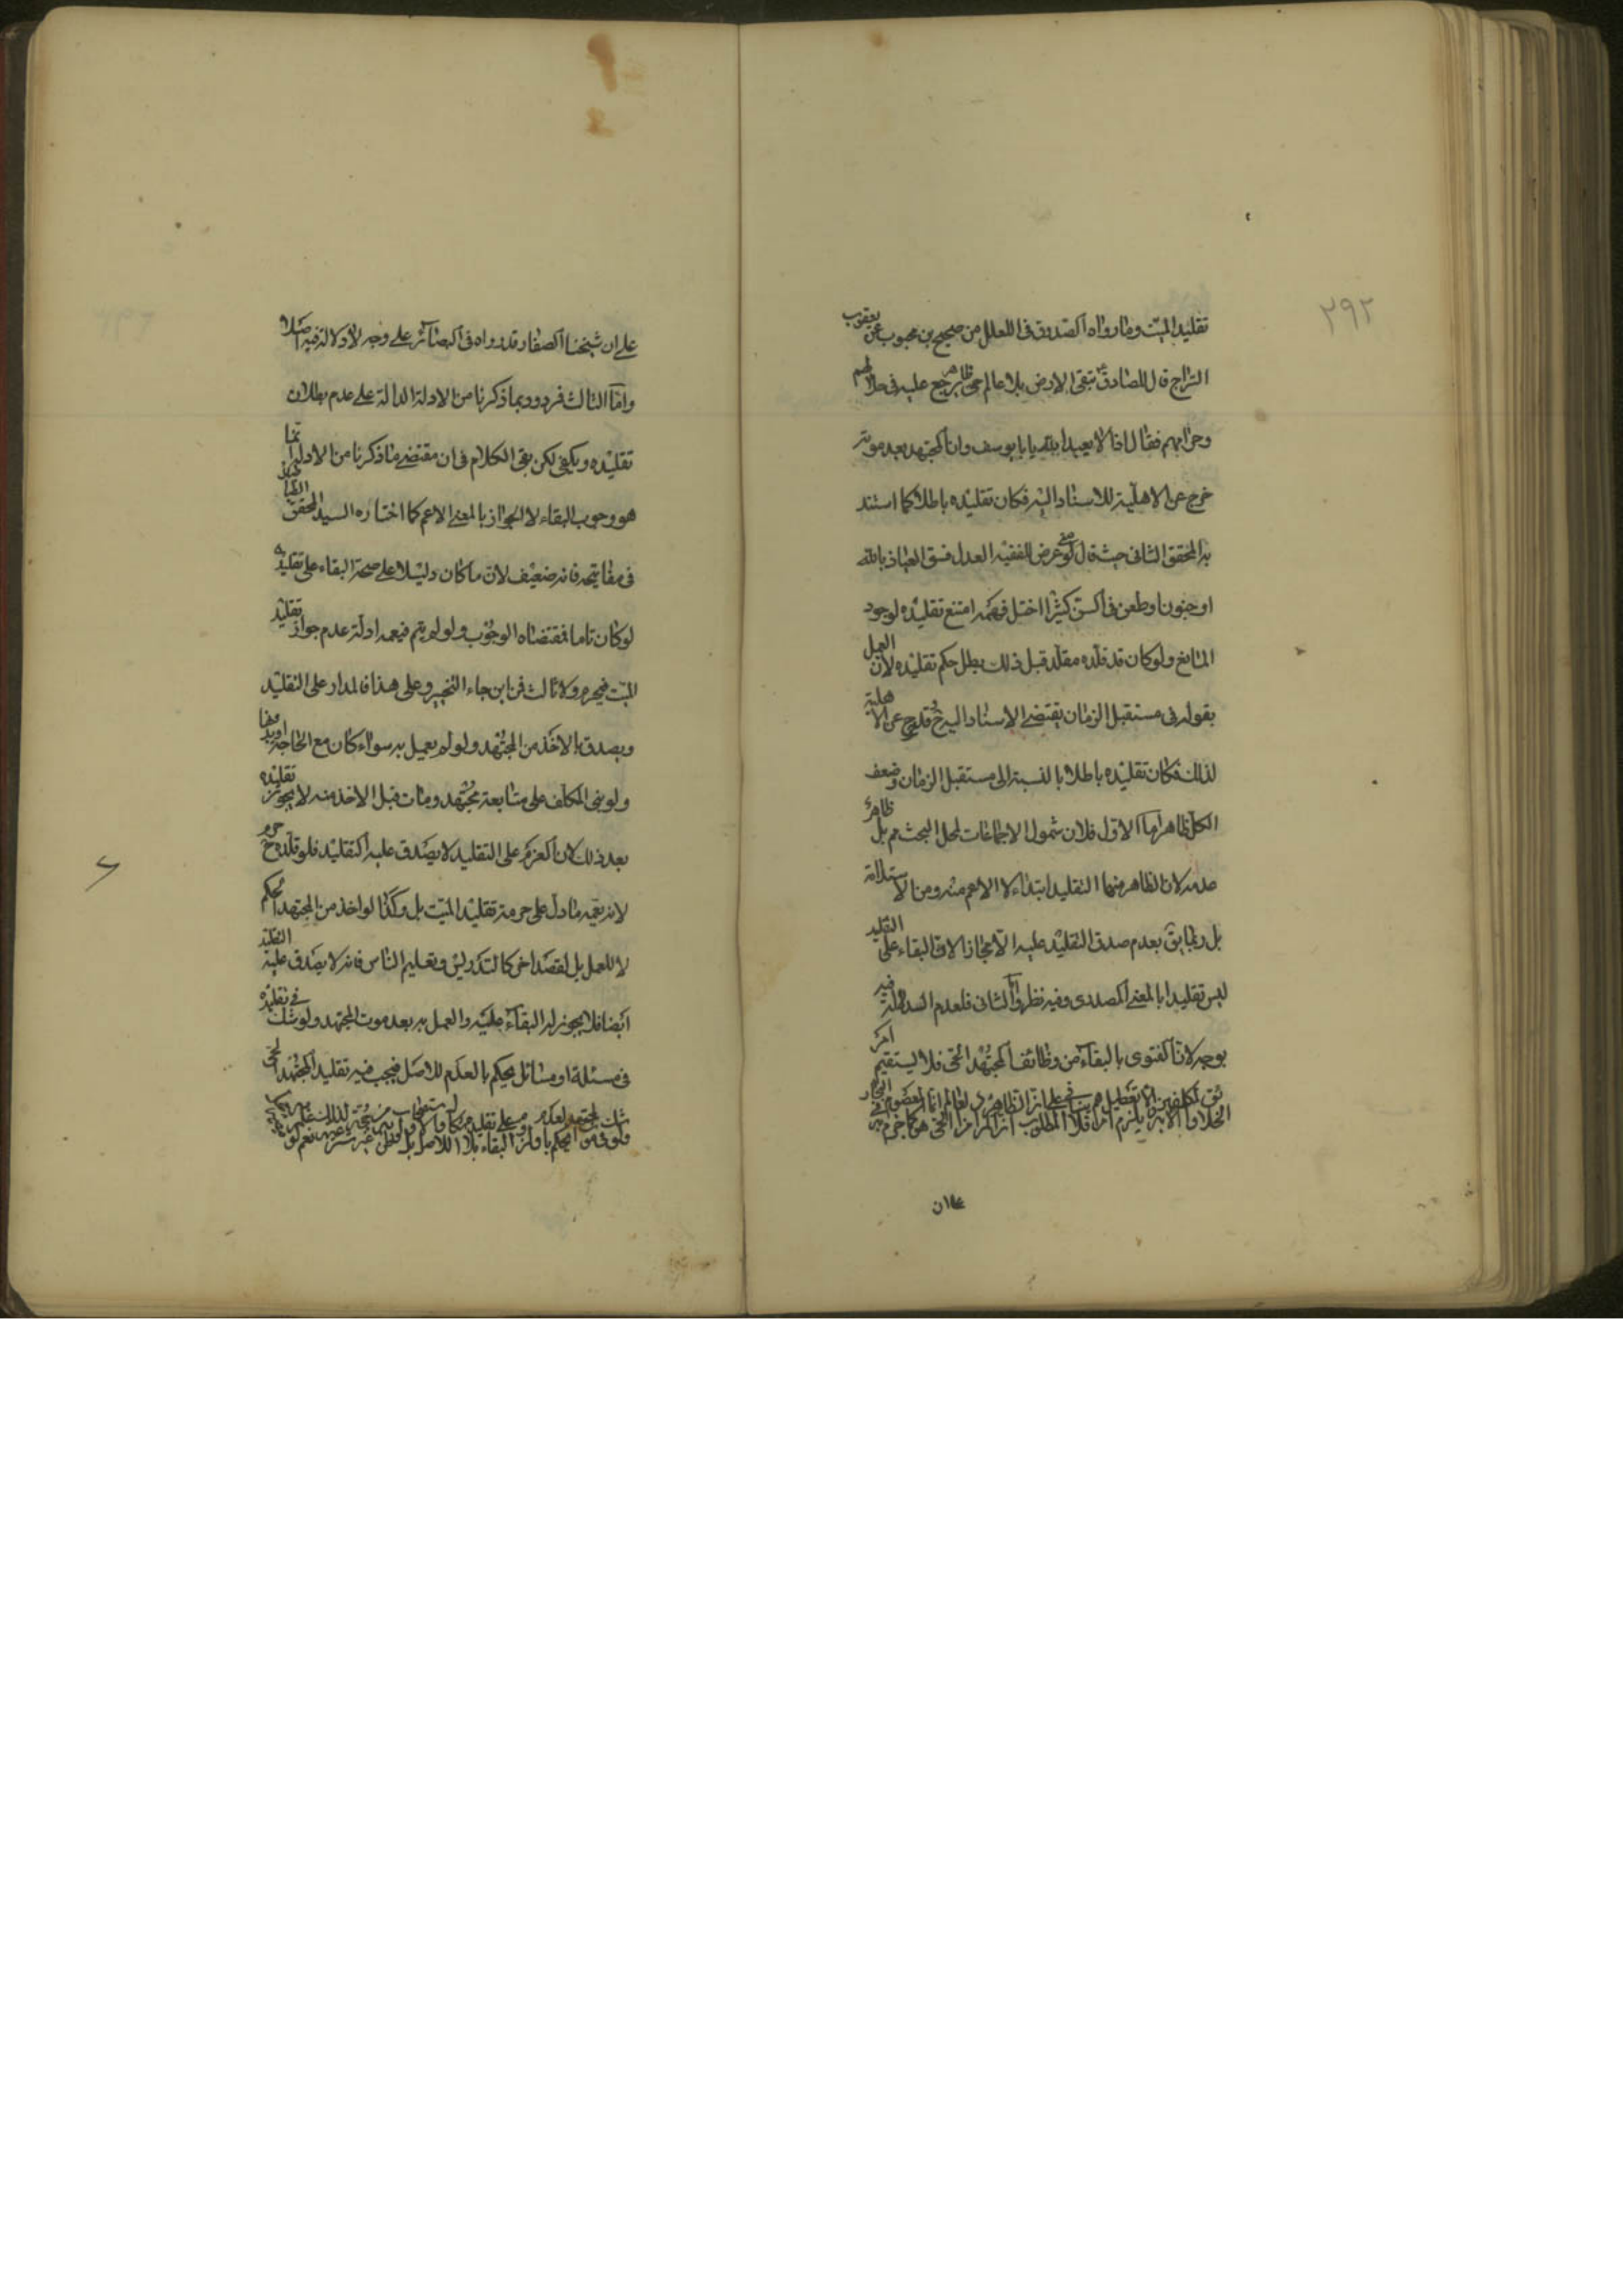 ۲۹۲
تقليد الميت وما رواه الصدوق فى العلل من صحيح بن محبوب عن يعقوب
السراج قال للصادق ع تبقى الارض بلا عالم حى ظاهر يرجع عليه فى حلالهم
وحرامهم فقال اذا لا يعبد الله يا ابا يوسف وان المجتهد بعد موته
خرج عن الاهلية للاستناد اليه فكان تقليده باطلا كما استند
به المحقق الثانى حيث قال لو عرض للفقيه العدل فسق العياذ بالله
او جنون او طعن فى السن كثيرا اختل فهمه امتنع تقليده لوجود
المانع ولو كان قد قلده مقلد قبل ذلك بطل حكم تقليده لان العمل
بقوله فى مستقبل الزمان يقتضى الاستناد اليه ح وقد خرج عن الاهلية
لذلك فكان تقليده باطلا بالنسبة الى مستقبل الزمان وضعف
الكل ظاهر اما الاول فلان شمول الاجماعات لمحل البحث مم بل ظاهرة
عدمه لان الظاهر منها التقليد ابتداء لا الاعم منه ومن الاستدامة
بل ربما يق بعدم صدق التقليد عليه الا مجازا لان البقاء على التقليد
ليس تقليدا بالمعنى المصدرى وفيه نظر واما الثانى فلعدم الدلالة فيه
بوجه لان الفتوى بالبقاء من وظائف المجتهد الحى فلا يستقيم امر
علان
على ان شيخنا الصفار قد رواه فى البصائر على وجه لا دلالة فيه اصلا
واما الثالث فمردود بما ذكرنا من الادلة الدالة على عدم بطلان
تقليده ويكفى لكن بقى الكلام فى ان مقتضى ما ذكرنا من الادلة
هو وجوب البقاء لا الجواز بالمعنى الاعم كما اختاره السيد المحقق
فى مفاتيحه فانه ضعيف لان ما كان دليلا على صحة البقاء على تقليده
لو كان تاما فمقتضاه الوجوب ولو لم يتم فيعمه ادلة عدم جواز تقليد
الميت فيحرم ولا ثالث فمن اين جاء التخيير وعلى هذا فالمدار على التقليد
ويصدق بالاخذ من المجتهد ولو لم يعمل به سواء كان مع الحاجة او بدونها
ولو بنى المكلف على متابعة مجتهد ومات قبل الاخذ منه لا يجوز تقليده
بعد ذلك لان العزم على التقليد لا يصدق عليه التقليد فلو قلده ح حرم
لانه يعمه ما دل على حرمة تقليد الميت بل وكذا لو اخذ من المجتهد الحكم
لا للعمل بل لقصد اخر كالتدريس وتعليم الناس فانه لا يصدق عليه التقليد
ايضا فلا يجوز له البقاء عليه والعمل به بعد موت المجتهد ولو شك فى تقليده
فى مسئلة او مسائل يحكم بالعدم للاصل فيجب فيه تقليد المجتهد الحى